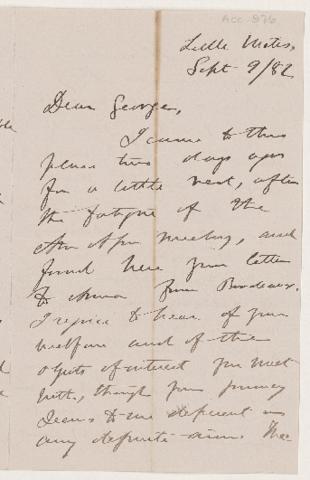 Acc. 876
Little Metis,
Sept 9/82
Dear George,
I came to this
place two days ago
for a little rest, after
the fatigue of the
meeting, and
found here your letter
to from Bordeaux.
I rejoice to hear of your
welfare and of the
objects of interest you meet
with, though your journey
seems to me deficient in
any definite aim. The